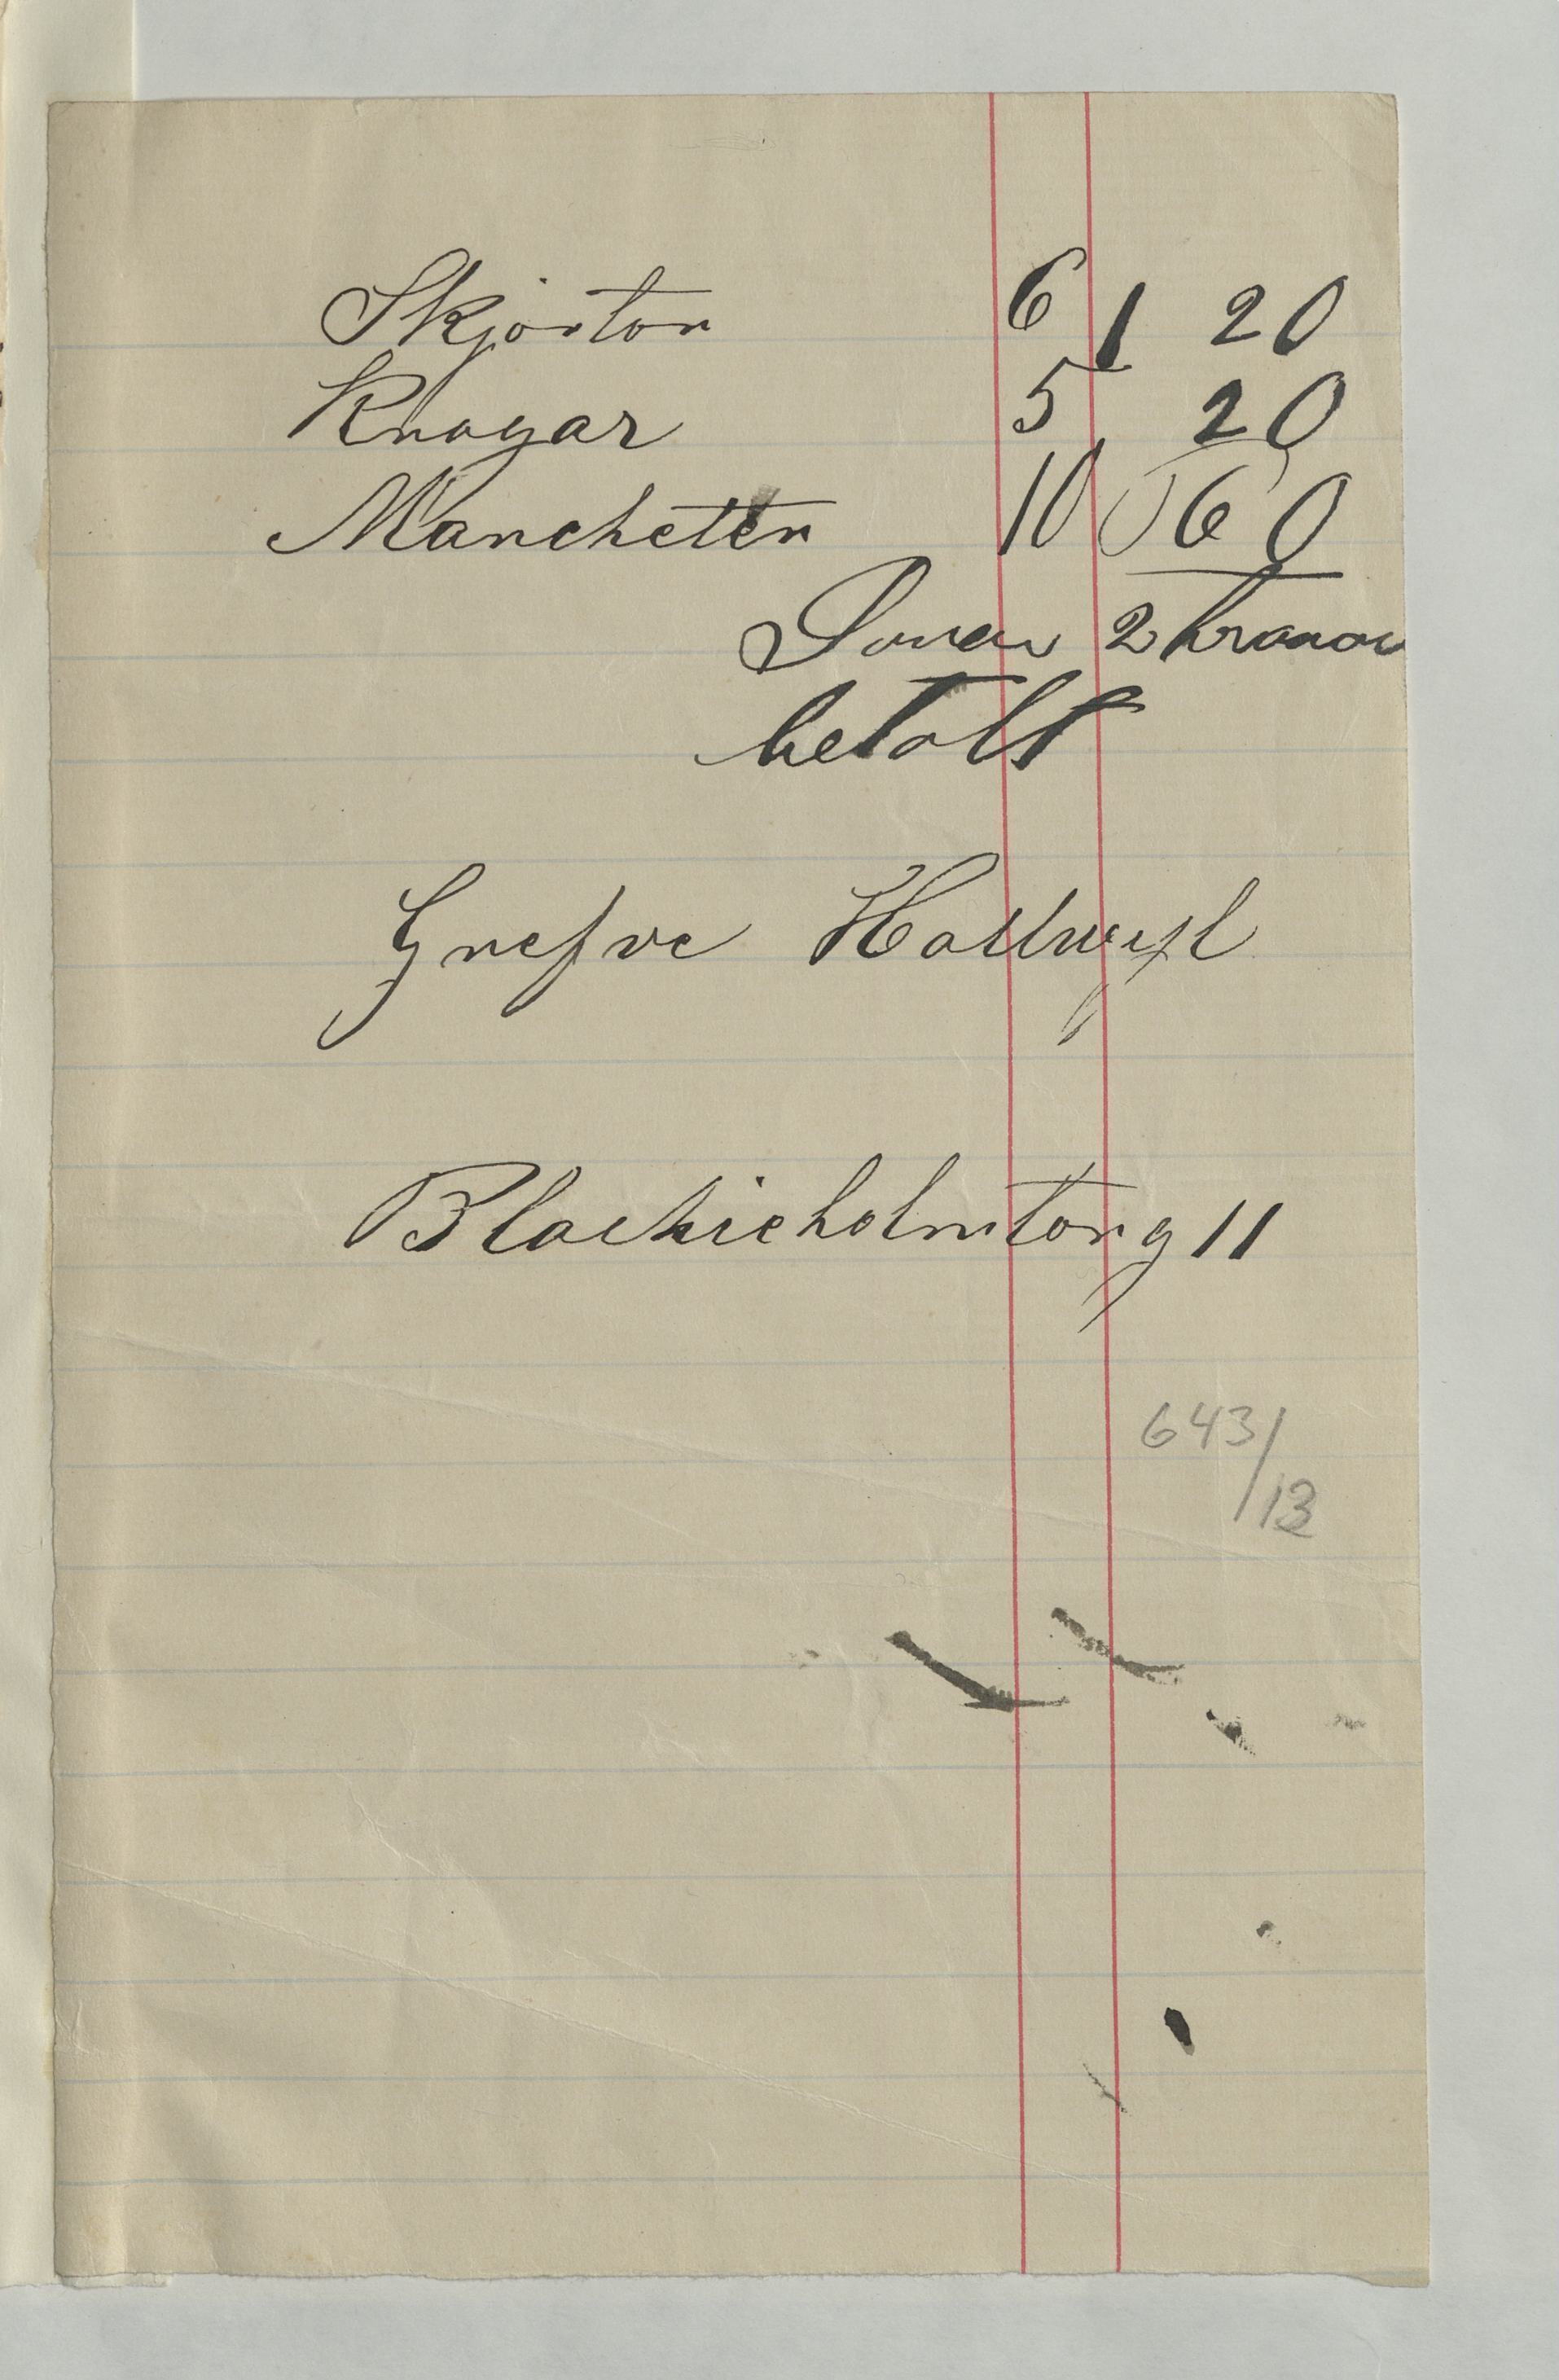 Skjorter 6 1 20
Kragar 5 20
Manchetter 10 060
Suma 2 kronor
betalt
Grefve Hallwyl
Blackieholmtorg 11
643/
13